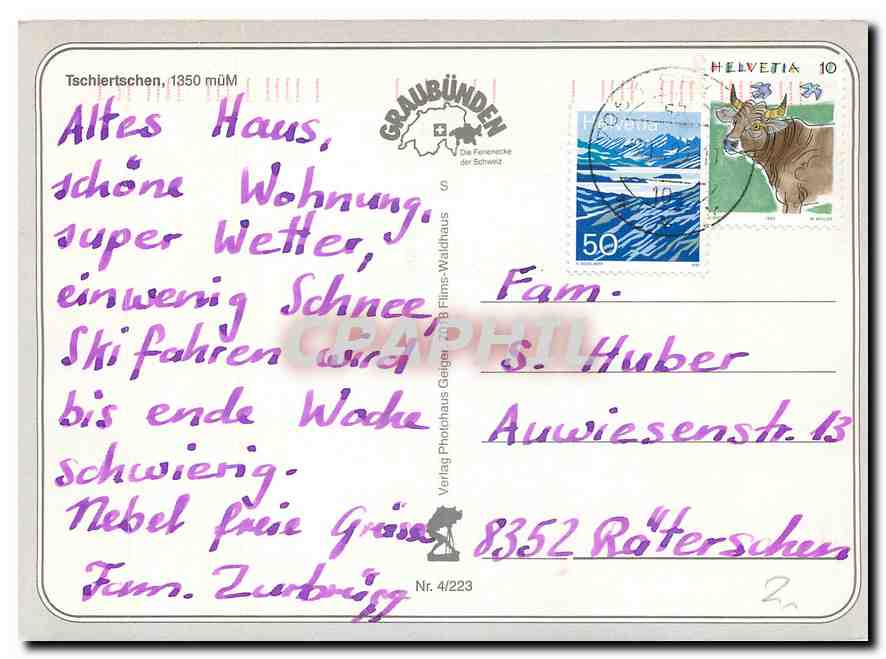 Tschiertschen, 1350 müM
Altes Haus,
schöne Wohnung,
super Wetter,
einwenig Schnee,
Skifahren wird
bis ende Woche
schwierig.
Nebel freie Grüsse
Fam. Zurbrügg
GRAUBÜNDEN
Die Ferienecke
der Schweiz
S
Verlag Photohaus Geiger, 7018 Flims-Waldhaus
Nr. 4/223
Helvetia
50
HELVETIA 10
Fam.
S. Huber
Auwiesenstr. 13
8352 Räterschen
CPAPHIL